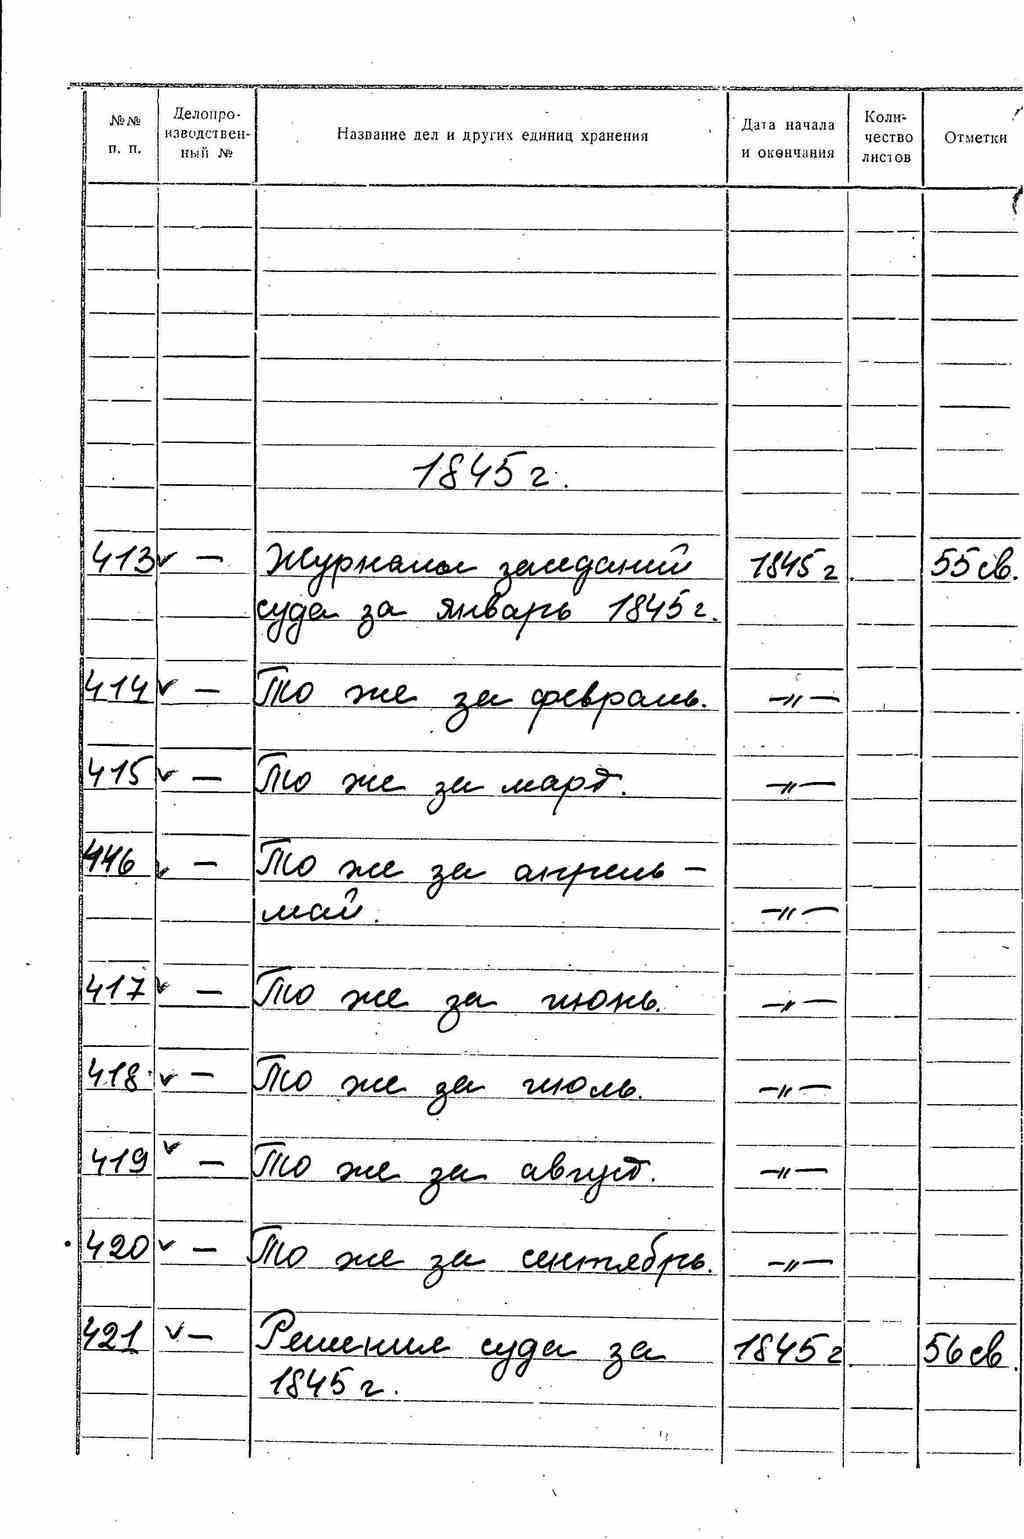 №№ п. п.
Делопро-
изводствен-
ный №
Название дел и других единиц хранения
Дата начала
и окончания
Коли-
чество
листов
Отметки
1845 г.
413 v — Журналы заседаний 1845 г. 55 св.
суда за январь 1845 г.
414 v — То же за февраль. —"—
415 v — То же за март. —"—
416 v — То же за апрель –
май. —"—
417 v — То же за июнь. —"—
418 v — То же за июль. —"—
419 v — То же за август. —"—
420 v — То же за сентябрь. —"—
421 v — Решения суда за 1845 г. 56 св.
1845 г.